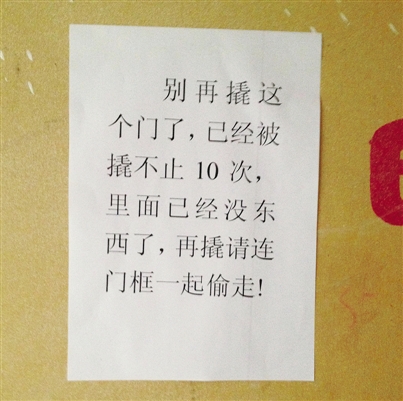 别再撬这
个门了，已经被
撬不止 10 次，
里面已经没东
西了，再撬请连
门框一起偷走！